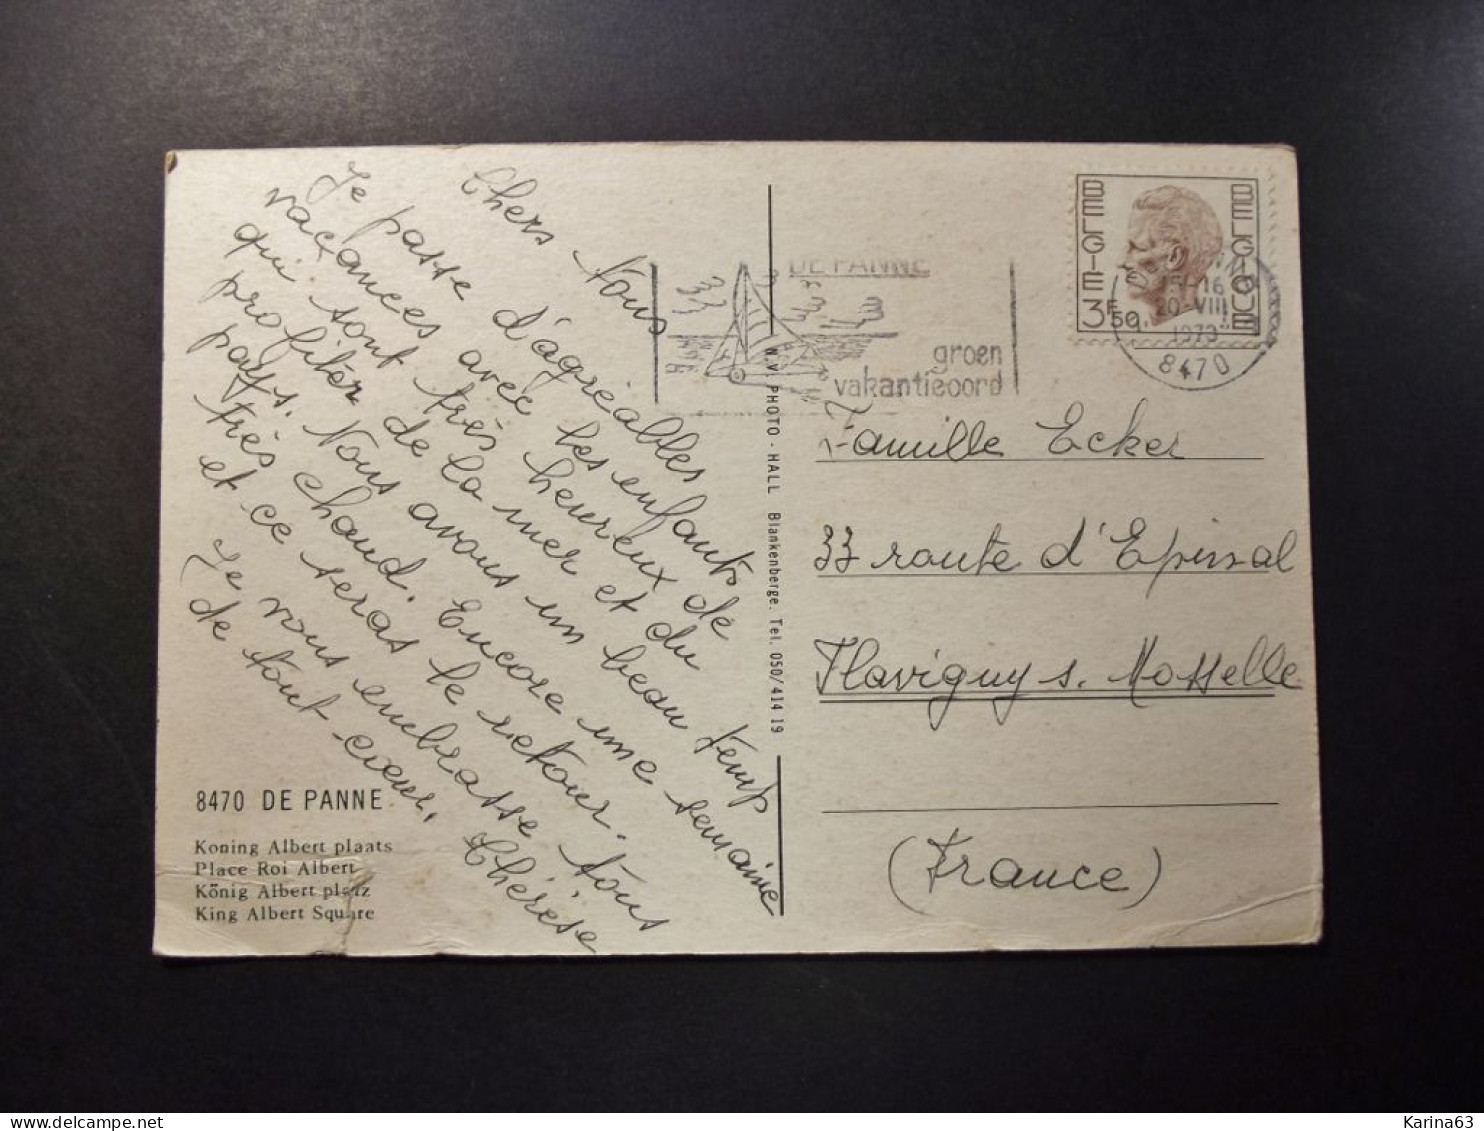 Chers tous
Je passe d'agréables
vacances avec les enfants
qui sont très heureux de
profiter de la mer et du
pays. Nous avons un beau temp
très chaud. Encore une semaine
et ce seras le retour.
Je vous embrasse tous
de tout cœur.
Thérèse
8470 DE PANNE
Koning Albert plaats
Place Roi Albert
König Albert platz
King Albert Square
N.V. PHOTO - HALL Blankenberge. Tel. 050/414 19
DE PANNE
groen
vakantieoord
BELGIE
BELGIQUE
3F50
15-16
20-VIII
1973
8470
Famille Ecker
33 route d'Epinal
Flavigny s. Mosselle
(France)
Karina63